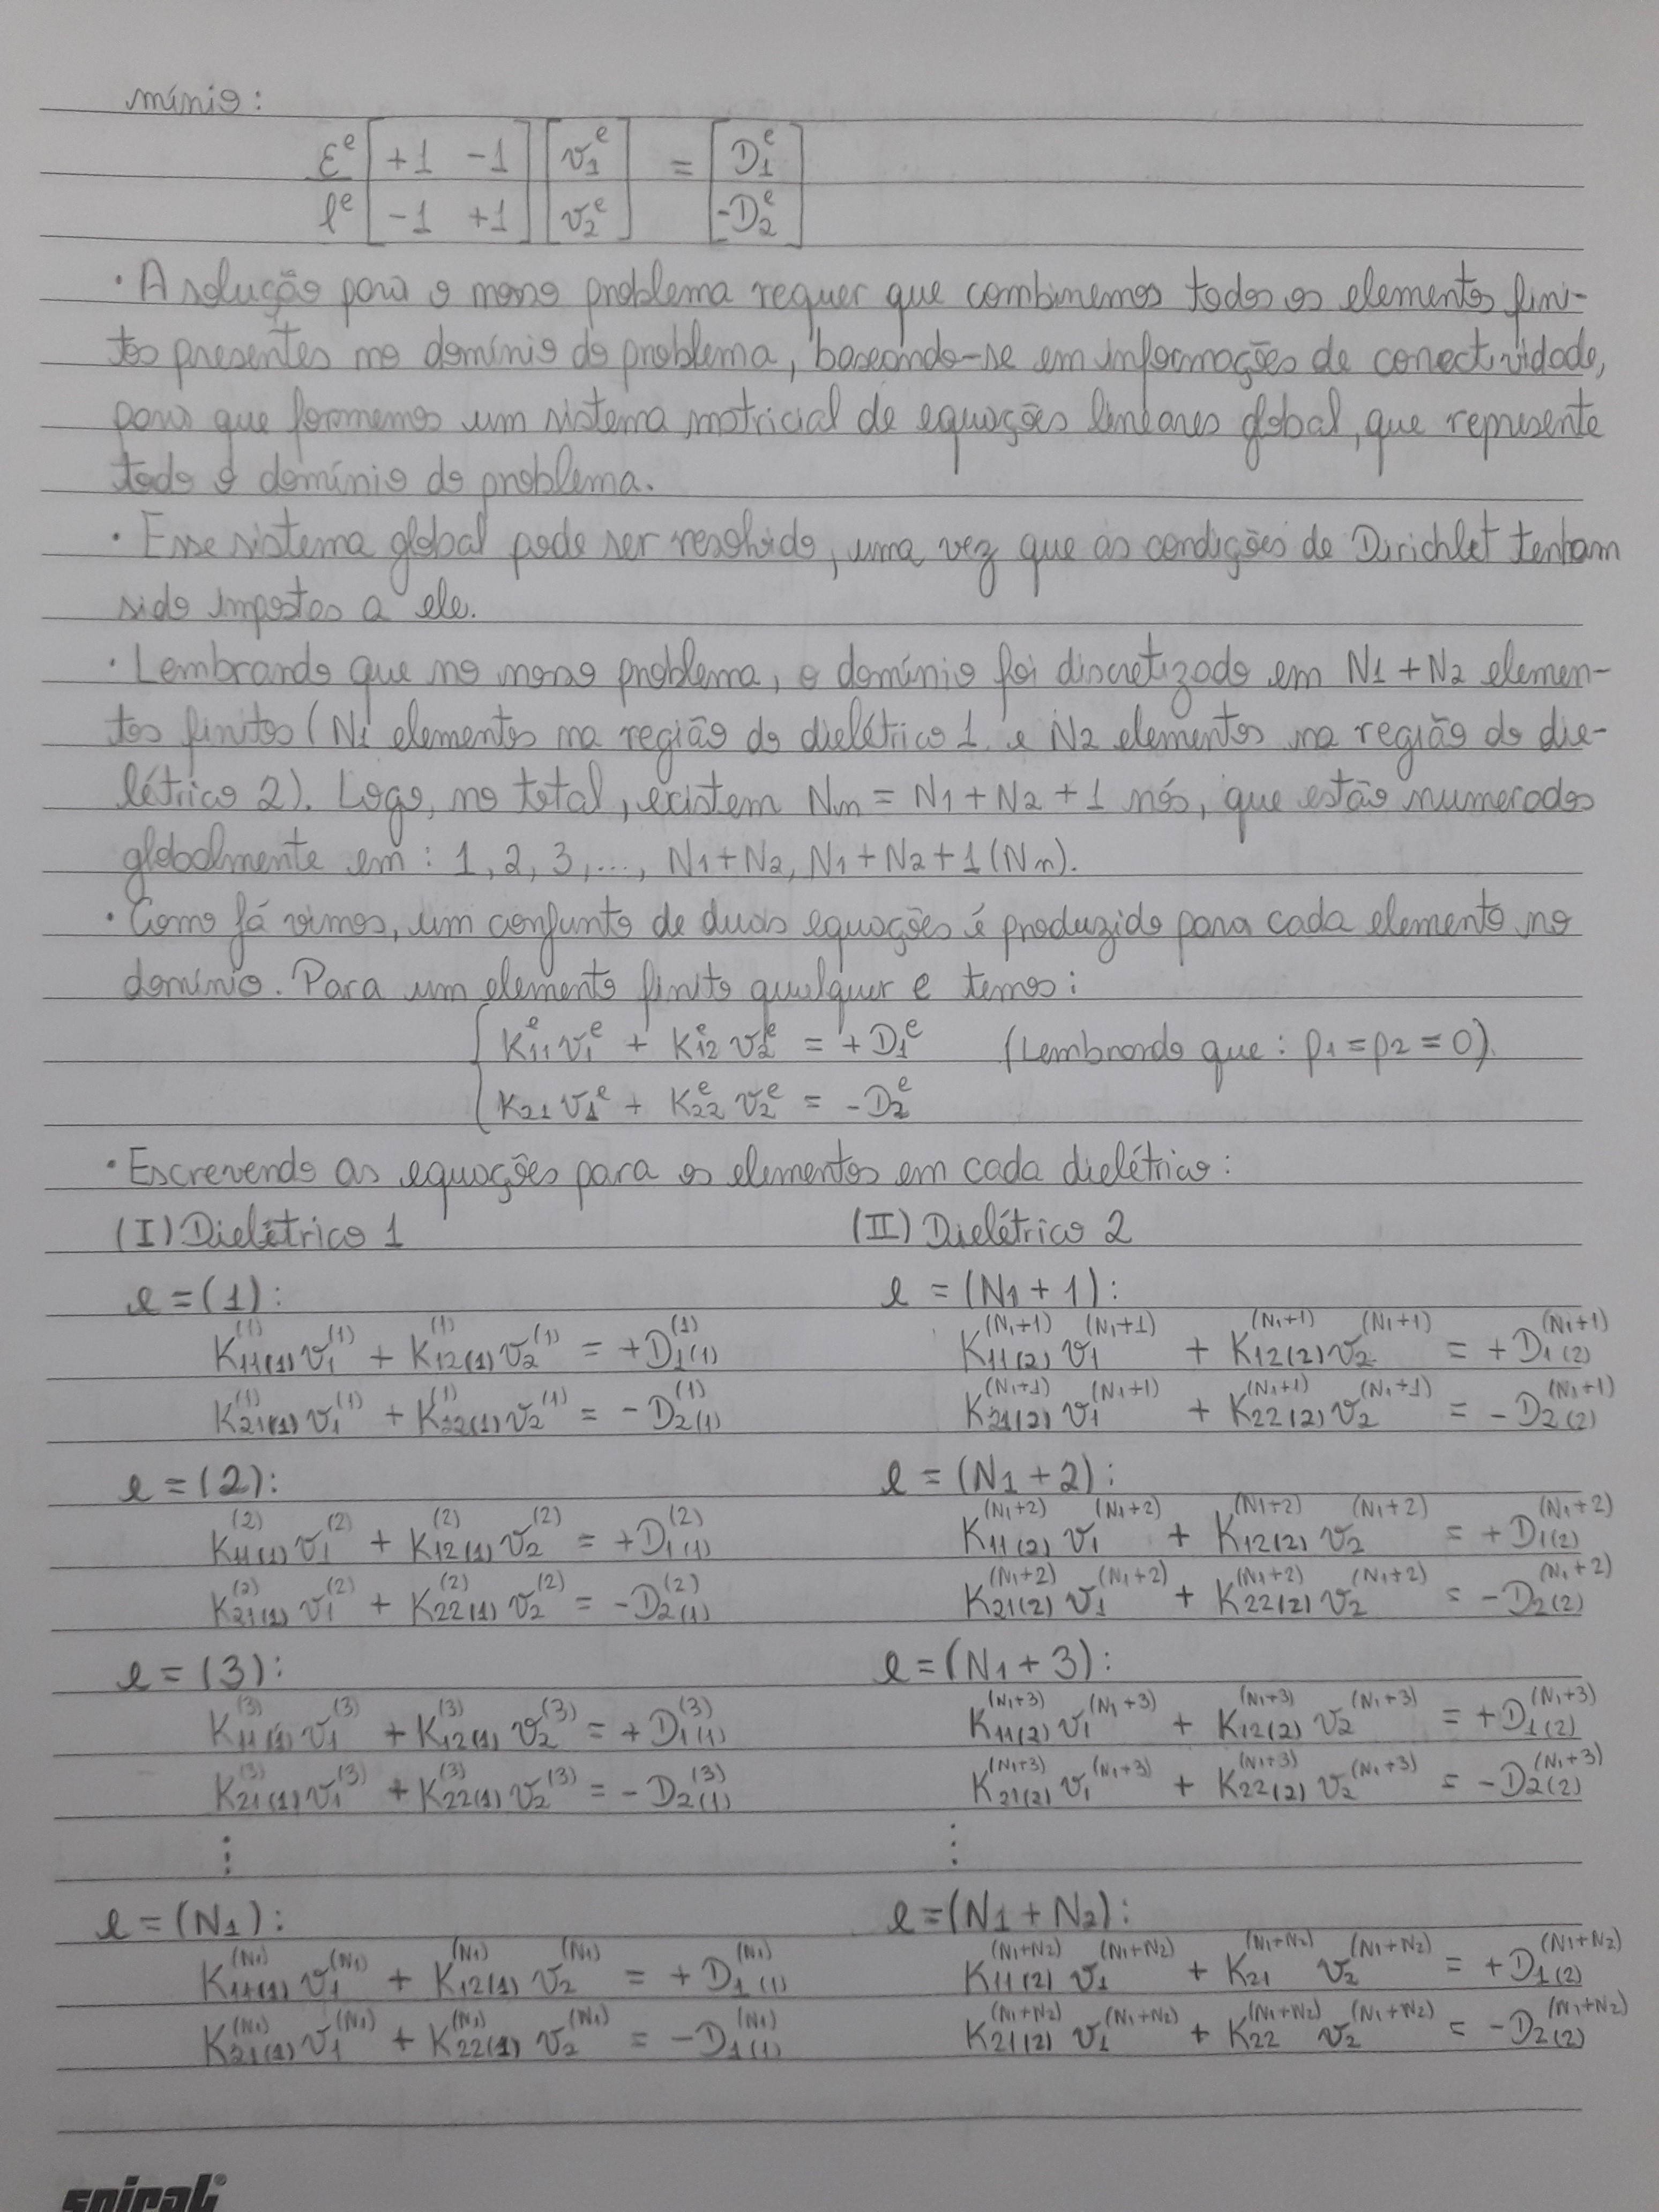 mínio:
εᵉ/ℓᵉ [+1 -1; -1 +1] [v₁ᵉ; v₂ᵉ] = [D₁ᵉ; -D₂ᵉ]
· A solução para o nosso problema requer que combinemos todos os elementos fini-
tos presentes no domínio do problema, baseando-se em informações de conectividade,
para que formemos um sistema matricial de equações lineares global, que represente
todo o domínio do problema.
· Esse sistema global pode ser resolvido, uma vez que as condições de Dirichlet tenham
sido impostas a ele.
· Lembrando que no nosso problema, o domínio foi discretizado em N1 + N2 elemen-
tos finitos (N1 elementos na região do dielétrico 1 e N2 elementos na região do die-
létrico 2). Logo, no total, existem Nn = N1 + N2 + 1 nós, que estão numerados
globalmente em: 1, 2, 3, ..., N1 + N2, N1 + N2 + 1 (Nn).
· Como já vimos, um conjunto de duas equações é produzido para cada elemento no
domínio. Para um elemento finito qualquer e temos:
K₁₁ᵉ v₁ᵉ + K₁₂ᵉ v₂ᵉ = + D₁ᵉ (Lembrando que: p₁ = p₂ = 0).
K₂₁ v₁ᵉ + K₂₂ᵉ v₂ᵉ = - D₂ᵉ
· Escrevendo as equações para os elementos em cada dielétrico:
(I) Dielétrico 1 (II) Dielétrico 2
e = (1): e = (N1 + 1):
K11(1)^(1) v1^(1) + K12(1)^(1) v2^(1) = +D1(1)^(1) K11(2)^(N1+1) v1^(N1+1) + K12(2)^(N1+1) v2^(N1+1) = +D1(2)^(N1+1)
K21(1)^(1) v1^(1) + K22(1)^(1) v2^(1) = -D2(1)^(1) K21(2)^(N1+1) v1^(N1+1) + K22(2)^(N1+1) v2^(N1+1) = -D2(2)^(N1+1)
e = (2): e = (N1 + 2):
K11(1)^(2) v1^(2) + K12(1)^(2) v2^(2) = +D1(1)^(2) K11(2)^(N1+2) v1^(N1+2) + K12(2)^(N1+2) v2^(N1+2) = +D1(2)^(N1+2)
K21(1)^(2) v1^(2) + K22(1)^(2) v2^(2) = -D2(1)^(2) K21(2)^(N1+2) v1^(N1+2) + K22(2)^(N1+2) v2^(N1+2) = -D2(2)^(N1+2)
e = (3): e = (N1 + 3):
K11(1)^(3) v1^(3) + K12(1)^(3) v2^(3) = +D1(1)^(3) K11(2)^(N1+3) v1^(N1+3) + K12(2)^(N1+3) v2^(N1+3) = +D1(2)^(N1+3)
K21(1)^(3) v1^(3) + K22(1)^(3) v2^(3) = -D2(1)^(3) K21(2)^(N1+3) v1^(N1+3) + K22(2)^(N1+3) v2^(N1+3) = -D2(2)^(N1+3)
⋮ ⋮
e = (N1): e = (N1 + N2):
K11(1)^(N1) v1^(N1) + K12(1)^(N1) v2^(N1) = +D1(1)^(N1) K11(2)^(N1+N2) v1^(N1+N2) + K21^(N1+N2) v2^(N1+N2) = +D1(2)^(N1+N2)
K21(1)^(N1) v1^(N1) + K22(1)^(N1) v2^(N1) = -D1(1)^(N1) K21(2)^(N1+N2) v1^(N1+N2) + K22^(N1+N2) v2^(N1+N2) = -D2(2)^(N1+N2)
spiral®